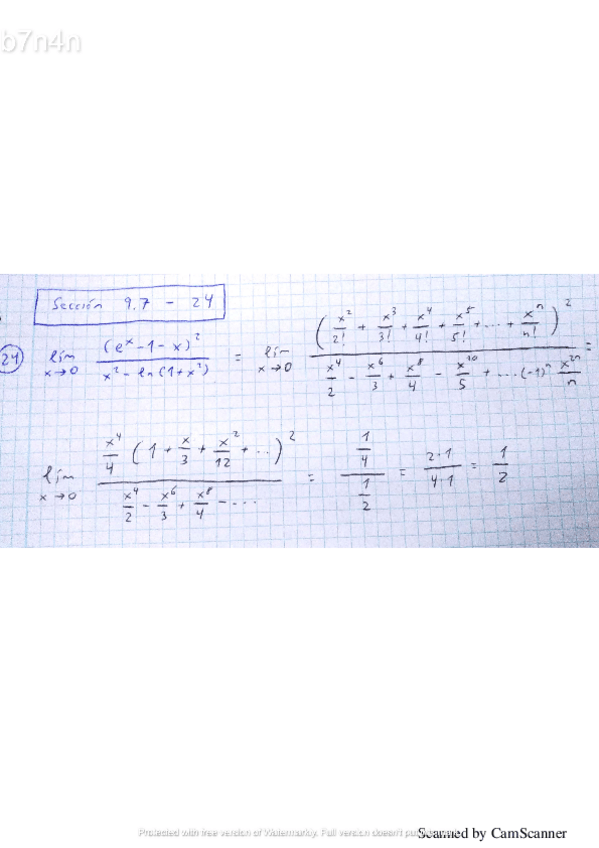 b7n4n
Sección 9.7 - 24
24) lím x→0 (eˣ - 1 - x)² / (x² - ln(1+x²)) = lím x→0 (x²/2! + x³/3! + x⁴/4! + x⁵/5! + ... + xⁿ/n!)² / (x⁴/2 - x⁶/3 + x⁸/4 - x¹⁰/5 + ...(-1)ⁿ x²ⁿ/n) =
lím x→0 x⁴/4 (1 + x/3 + x²/12 + ...)² / (x⁴/2 - x⁶/3 + x⁸/4 - ...) = (1/4) / (1/2) = 2·1 / 4·1 = 1/2
Protected with free version of Watermarkly. Full version doesn't put
Scanned by CamScanner